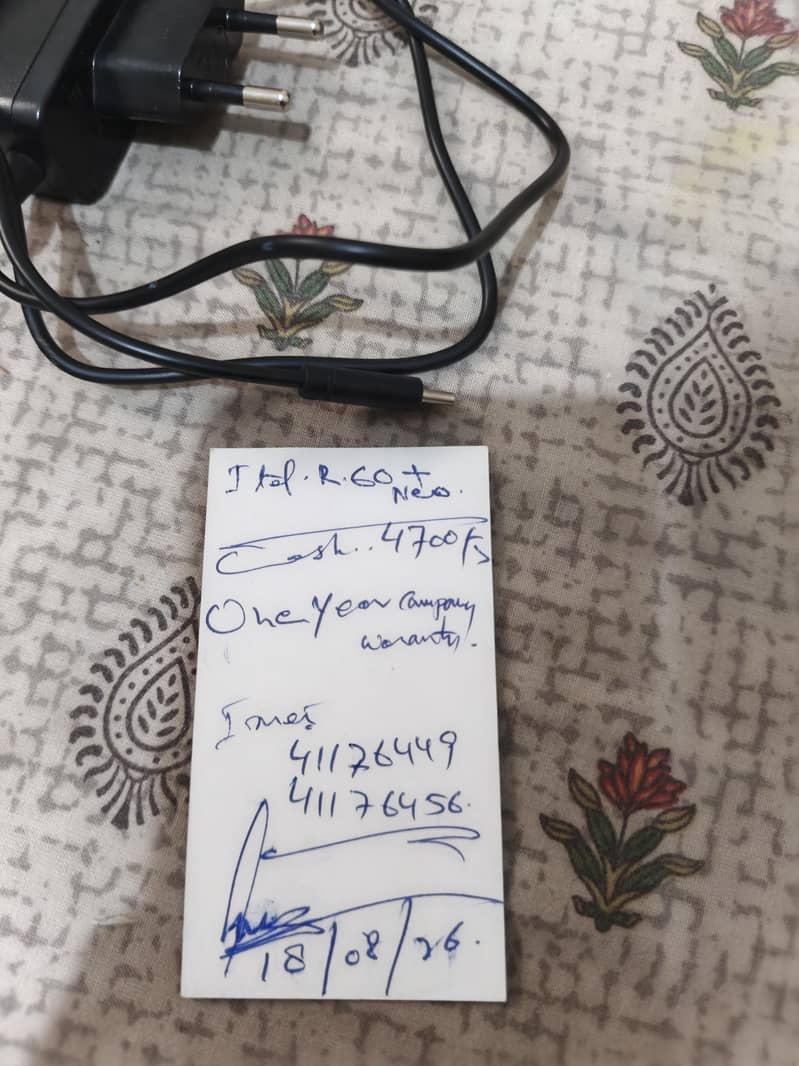 Itel. R. 60 +
New.
Cash.. 4700/-
One Year Company
Waranty.
Imei
41176449
41176456.
18/08/26.